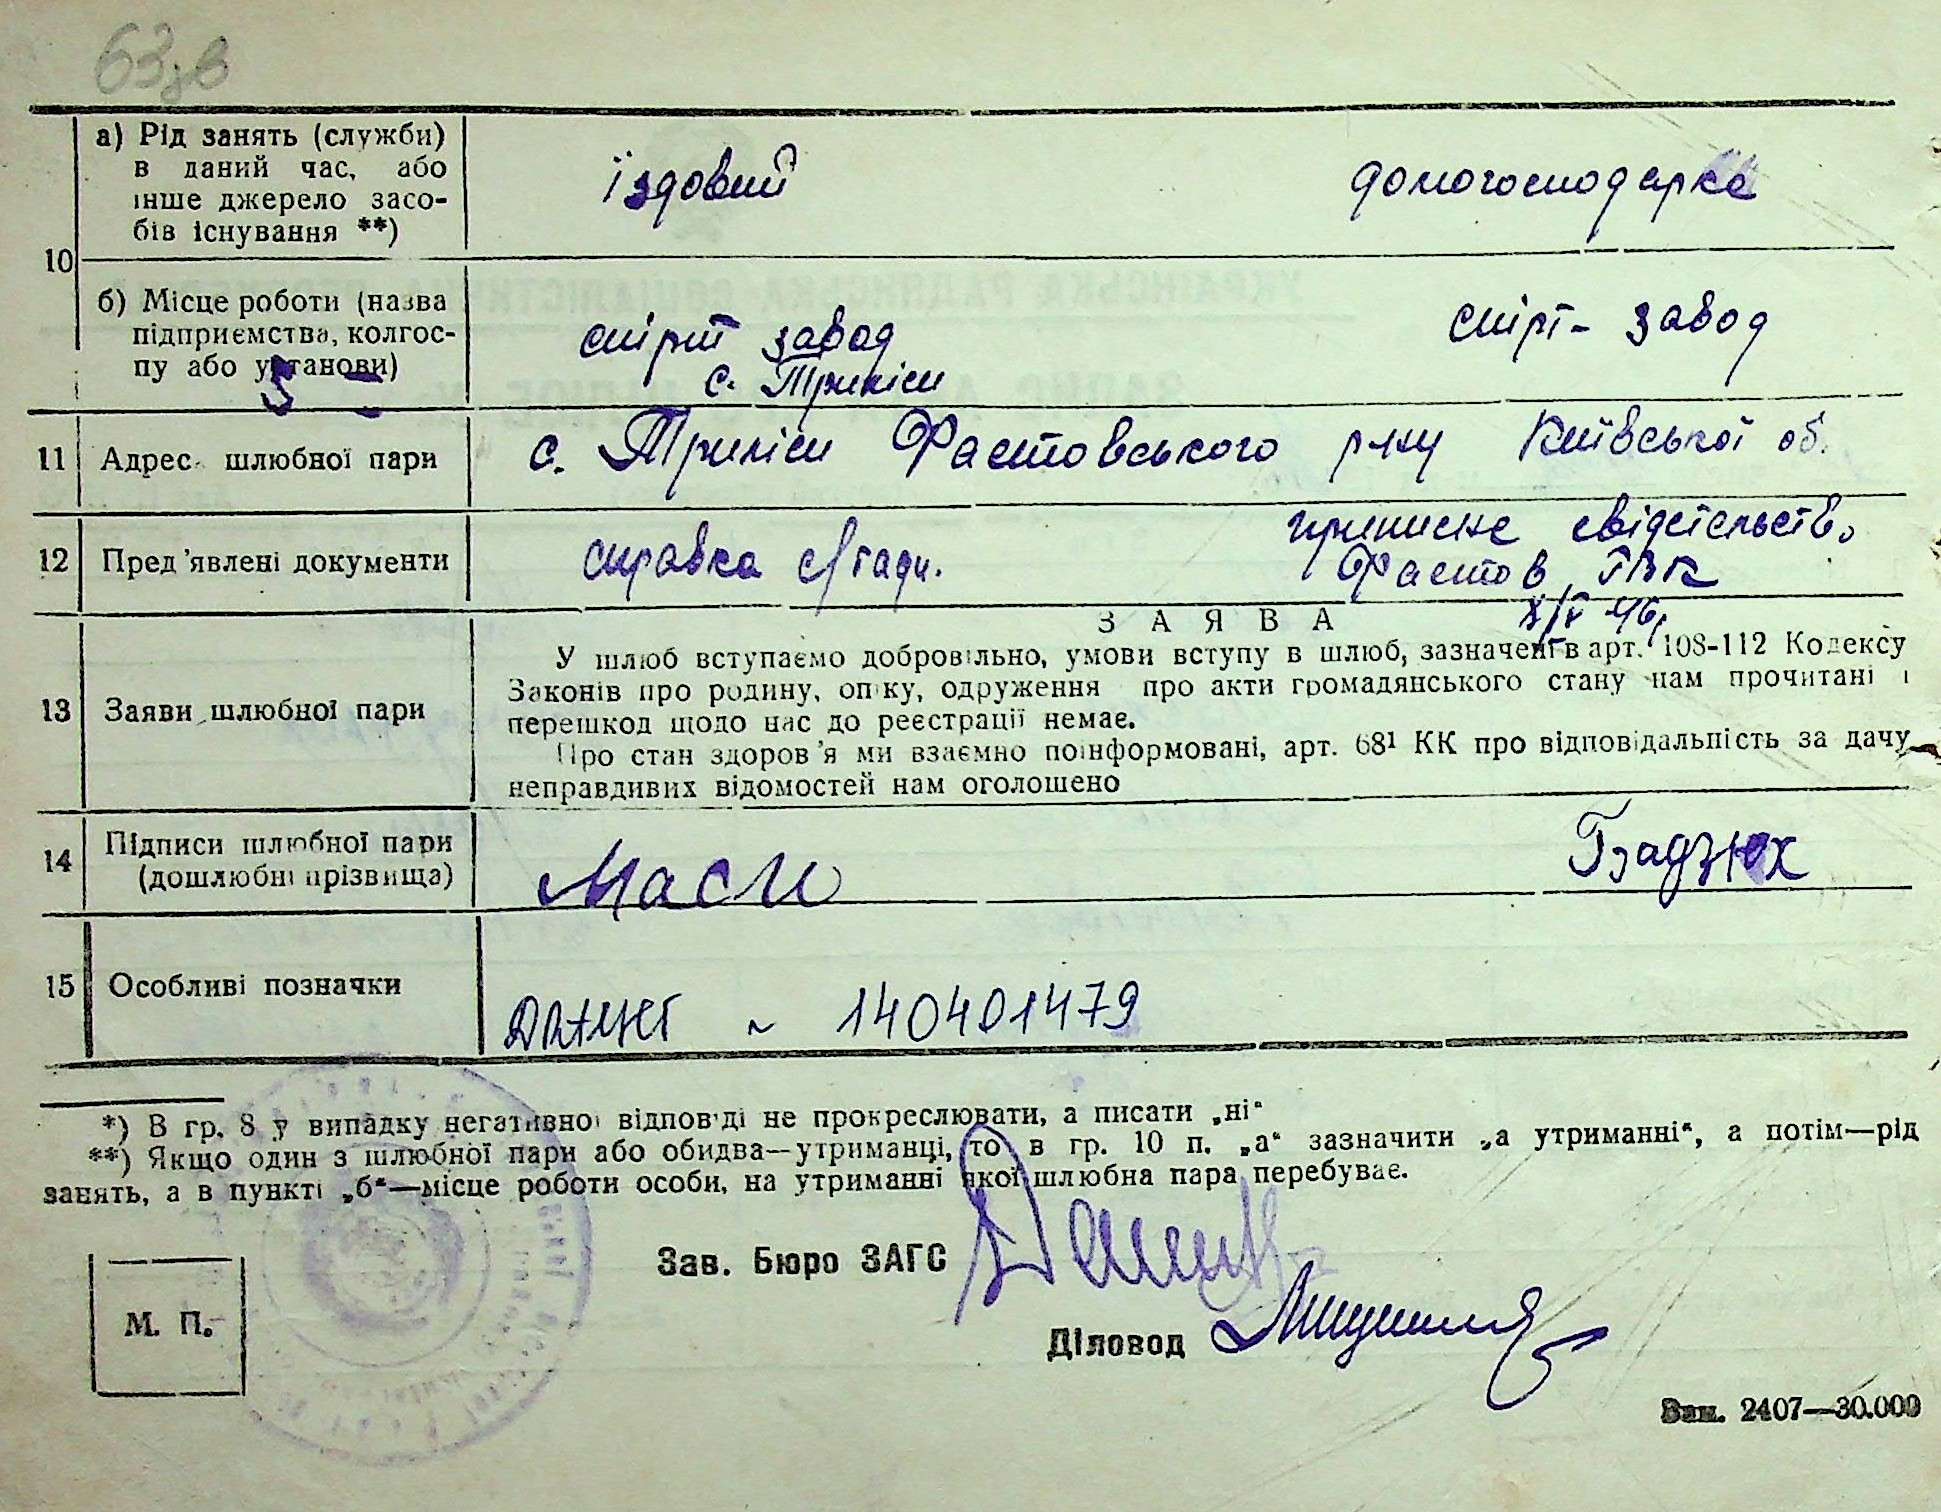 63зв
а) Рід занять (служби)
в даний час, або
інше джерело засо-
бів існування **)
їздовий
домогосподарка
10
б) Місце роботи (назва
підприємства, колгос-
пу або установи)
спірт завод
с. Триліси
спірт- завод
11 Адрес шлюбної пари
с. Триліси Фастовського р-ну Київської об.
12 Пред'явлені документи
справка с/ради.
приписне свідетельств.
Фастов. РВК
З А Я В А
13 Заяви шлюбної пари
У шлюб вступаємо добровільно, умови вступу в шлюб, зазначені в арт. 108-112 Кодексу
Законів про родину, опіку, одруження про акти громадянського стану нам прочитані і
перешкод щодо нас до реєстрації немає.
Про стан здоров'я ми взаємно поінформовані, арт. 68¹ КК про відповідальність за дачу
неправдивих відомостей нам оголошено
14 Підписи шлюбної пари
(дошлюбні прізвища)
15 Особливі позначки
~ 140401479
*) В гр. 8 у випадку негативної відповіді не прокреслювати, а писати „ні“
**) Якщо один з шлюбної пари або обидва—утриманці, то в гр. 10 п. „а“ зазначити „а утриманні“, а потім—рід
занять, а в пункті „б“—місце роботи особи, на утриманні якої шлюбна пара перебуває.
Зав. Бюро ЗАГС
М. П.
Діловод
Зам. 2407—30.000